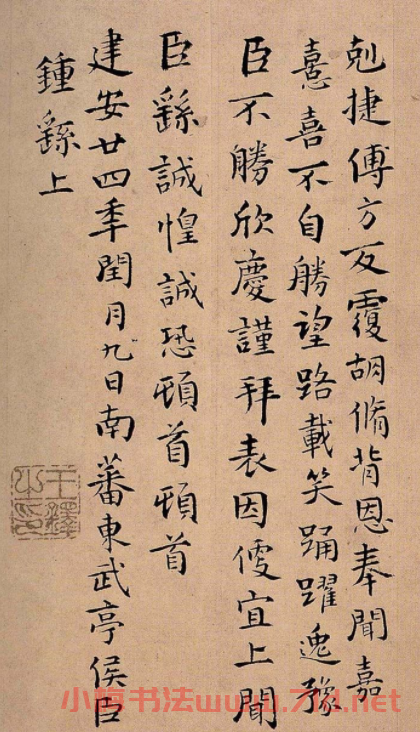 剋捷傅方反覆胡脩背恩奉聞嘉
憙喜不自勝望路載笑踊躍逸豫
臣不勝欣慶謹拜表因便宜上聞
臣繇誠惶誠恐頓首頓首
建安廿四秊閏月九日南蕃東武亭侯臣
鍾繇上
王鐸之印
小梅书法